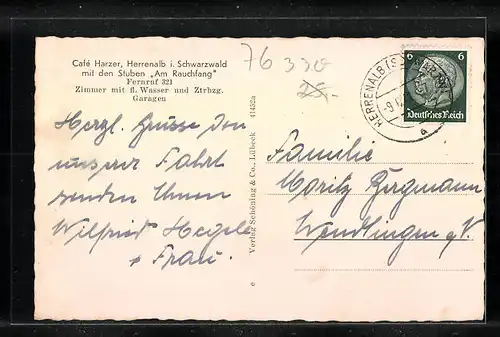 Café Harzer, Herrenalb i. Schwarzwald
mit den Stuben „Am Rauchfang"
Fernruf 321
Zimmer mit fl. Wasser und Ztrhzg.
Garagen
76 330
25.-
Herzl. Grüsse von
unserer Fahrt
senden Ihnen
Wilfried Hegele
+ Frau.
Verlag Schöning & Co., Lübeck 41452a
e
HERRENALB (S
-9.
a
6 6
Deutsches Reich
Familie
Moritz Bergmann
Wendlingen a/N.